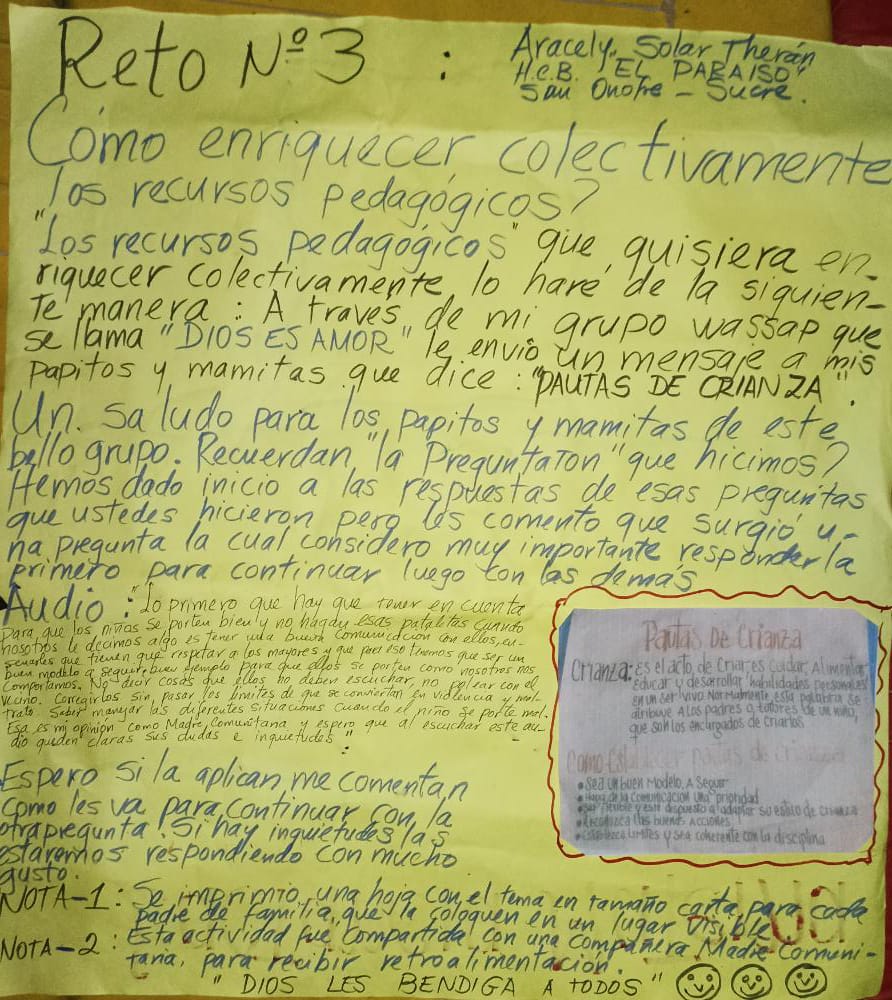 Reto Nº 3 :
Aracely Solar Therán
H.C.B. "EL PARAISO"
San Onofre - Sucre.
Cómo enriquecer colectivamente
los recursos pedagógicos?
"Los recursos pedagógicos" que quisiera en-
riquecer colectivamente lo haré de la siguien-
te manera : A través de mi grupo wassap que
se llama "DIOS ES AMOR" le envio un mensaje a mis
papitos y mamitas que dice : "PAUTAS DE CRIANZA".
Un saludo para los papitos y mamitas de este
bello grupo. Recuerdan "la Preguntaton" que hicimos?
Hemos dado inicio a las respuestas de esas preguntas
que ustedes hicieron pero les comento que surgió u-
na pregunta la cual considero muy importante responderla
primero para continuar luego con las demás
Audio : "Lo primero que hay que tener en cuenta
para que los niños se porten bien y no hagan esas pataletas cuando
nosotros le decimos algo es tener una buena comunicación con ellos, en-
señarles que tienen que respetar a los mayores y que por eso tenemos que ser un
buen modelo a seguir, buen ejemplo para que ellos se porten como nosotros nos
comportamos. No decir cosas que ellos no deben escuchar, no pelear con el
vecino. Corregirlos sin pasar los limites de que se conviertan en violencia o mal-
trato. Saber manejar las diferentes situaciones cuando el niño se porte mal.
Esa es mi opinión como Madre Comunitaria y espero que al escuchar este au-
dio queden claras sus dudas e inquietudes"
Pautas De Crianza
Crianza: Es el acto de Criar, es Cuidar, Alimentar
Educar y desarrollar habilidades personales
en un ser vivo. Normalmente esta palabra se
atribuye A los padres o tutores de un niño,
que son los encargados de Criarlos
Como Establecer pautas de crianza
• Sea un buen Modelo A Seguir
• Haga de la Comunicación una prioridad
• Sea flexible y esté dispuesto a adaptar su estilo de crianza
• Reconozca las buenas Acciones
• Establezca limites y sea coherente con la disciplina
Espero si la aplican me comentan
como les va para continuar con la
otra pregunta. Si hay inquietudes las
estaremos respondiendo con mucho
gusto.
NOTA-1 : Se imprimio una hoja con el tema en tamaño carta para cada
padre de familia, que la coloquen en un lugar visible
NOTA-2 : Esta actividad fue compartida con una compañera Madre Comuni-
taria, para recibir retroalimentación.
"DIOS LES BENDIGA A TODOS"